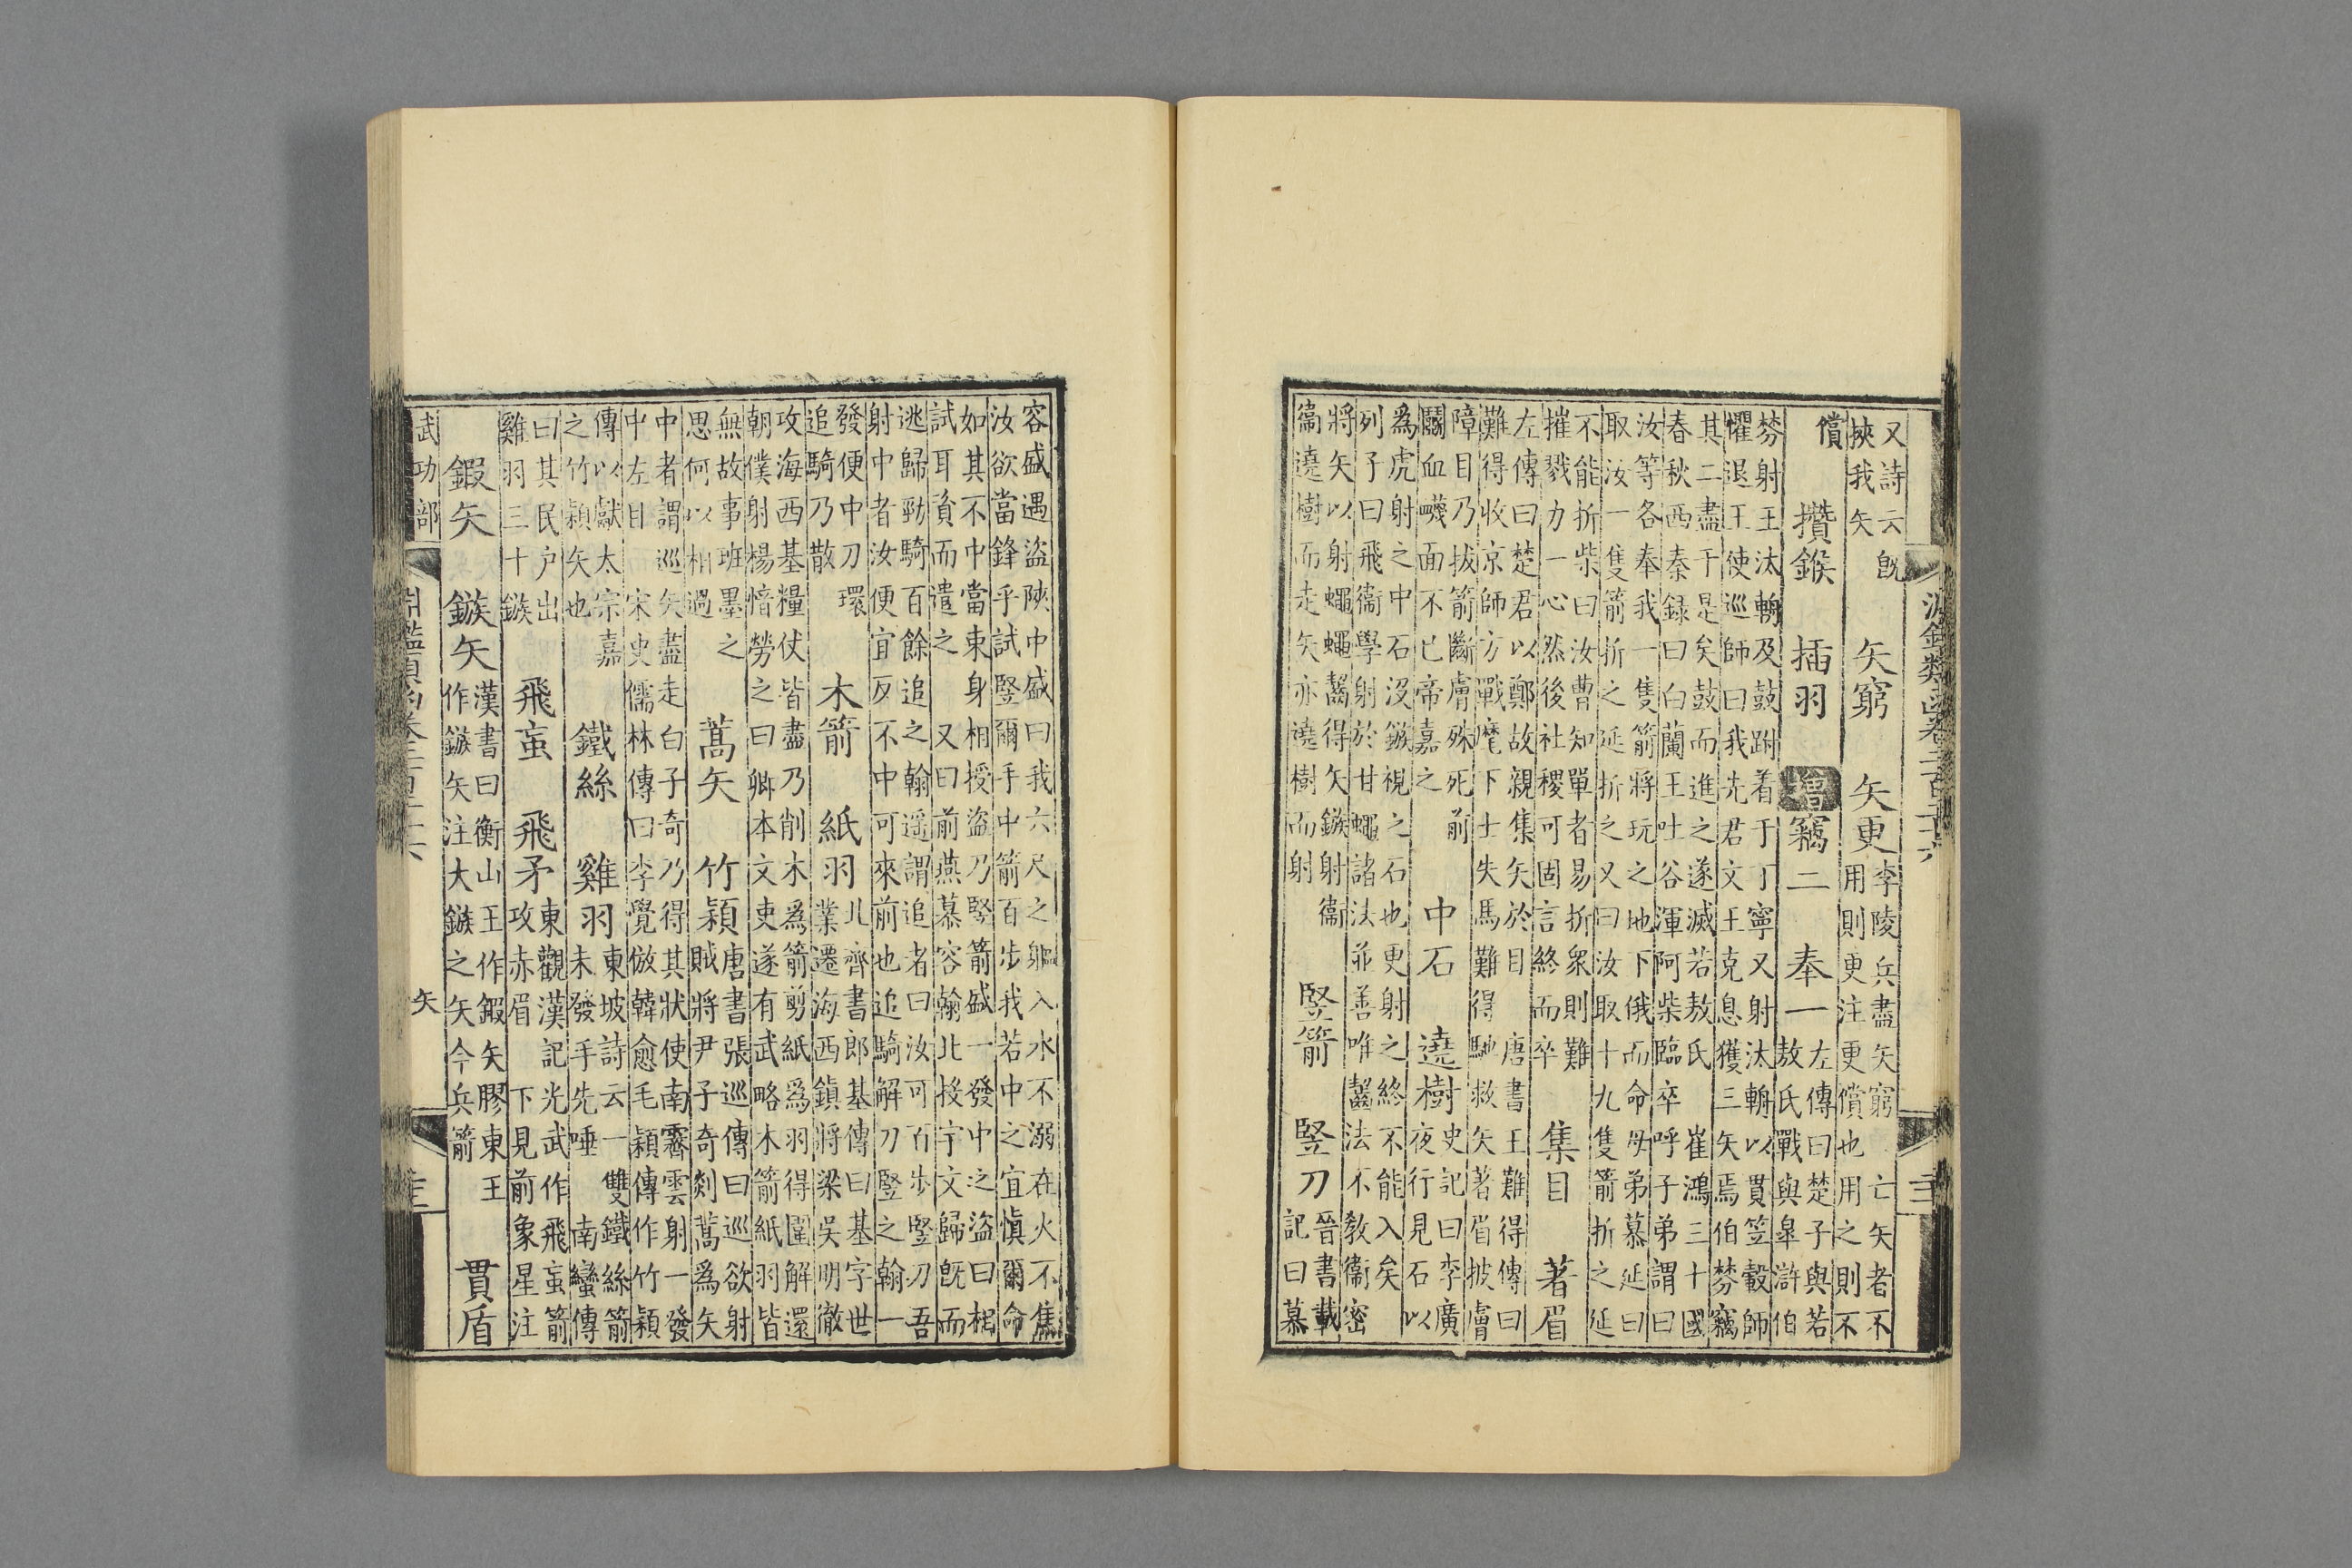 淵鑑類函卷二百二十六
又詩云既
挾我矢
矢窮 矢更
李陵兵盡矢窮 亡矢者不
用則更注更償也用之則不
償 攢鍭 插羽 增竊二 奉一
左傳曰楚子與若
敖氏戰與皋滸伯
棼射王汰輈及鼓跗着于丁寧又射汰輈以貫笠轂師
懼退王使巡師曰我先君文王克息獲三矢焉伯棼竊
其二盡于是矣鼓而進之遂滅若敖氏 崔鴻三十國
春秋西秦録曰白蘭王吐谷渾阿柴臨卒呼子弟謂曰
汝等各奉我一隻箭將玩之地下俄而命母弟慕延曰
取汝一隻箭折之延折之又曰汝取十九隻箭折之延
不能折柴曰汝曹知單者易折衆則難
摧戮力一心然後社稷可固言終而卒
集目 著眉
左傳曰楚君以鄭故親集矢於目 唐書王難得傳曰
難得收京師方戰麾下士失馬難得馳救矢著眉披膚
障目乃拔箭斷膚殊死前
鬭血衊面不已帝嘉之
中石 遶樹
史記曰李廣
夜行見石以
爲虎射之中石沒鏃視之石也更射之終不能入矣
列子曰飛衞學射於甘蠅諸法並善唯齧法不教衞密
將矢以射蠅蠅齧得矢鏃射衞
衞遶樹而走矢亦遶樹而射
竪箭 竪刀
晉書載
記曰慕
容盛遇盜陝中盛曰我六尺之軀入水不溺在火不焦
汝欲當鋒乎試竪爾手中箭百步我若中之宜愼爾命
如其不中當束身相授盜乃竪箭盛一發中之盜曰相
試耳資而遣之 又曰前燕慕容翰北投宇文歸既而
逃歸勁騎百餘追之翰遥謂追者曰汝可百步竪刀吾
射中者汝便宜反不中可來前也追騎解刀竪之翰一
發便中刀環
追騎乃散
木箭 紙羽
北齊書郎基傳曰基字世
業遷海西鎮將梁吳明徹
攻海西基糧仗皆盡乃削木爲箭剪紙爲羽得圍解還
朝僕射楊愔勞之曰卿本文吏遂有武略木箭紙羽皆
無故事班墨之
思何以相過
蒿矢 竹穎
唐書張巡傳曰巡欲射
賊將尹子奇剡蒿爲矢
中者謂巡矢盡走白子奇乃得其狀使南霽雲射一發
中左目 宋史儒林傳曰李覺倣韓愈毛穎傳作竹穎
傳以獻太宗嘉
之竹穎矢也
鐵絲 雞羽
東坡詩云一雙鐵絲箭
未發手先唾 南蠻傳
曰其民戸出
雞羽三十鏃
飛䖟 飛矛
東觀漢記光武作飛䖟箭
攻赤眉 下見前象星注
鍜矢 鏃矢
漢書曰衡山王作鍜矢膠東王
作鏃矢注大鏃之矢今兵箭
貫盾
武功部 矢